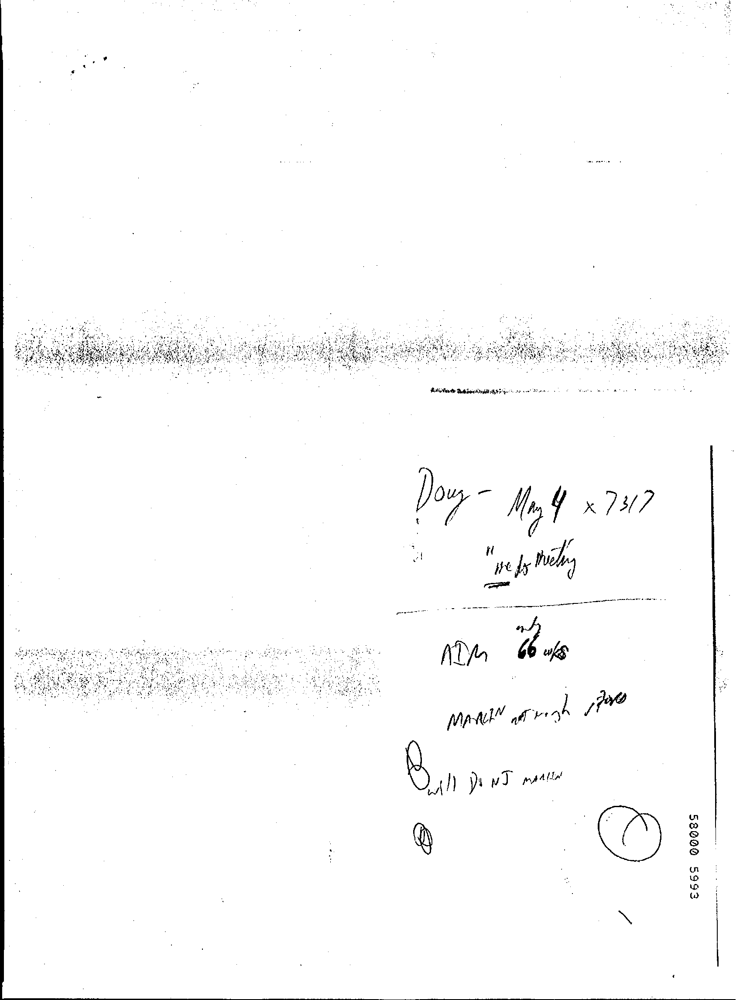 Doug - May 4 x 7317
" me for Meeting
only
ADM 66 wks
MARLIN not enough stores
will Do NJ MARLIN
58000 5993